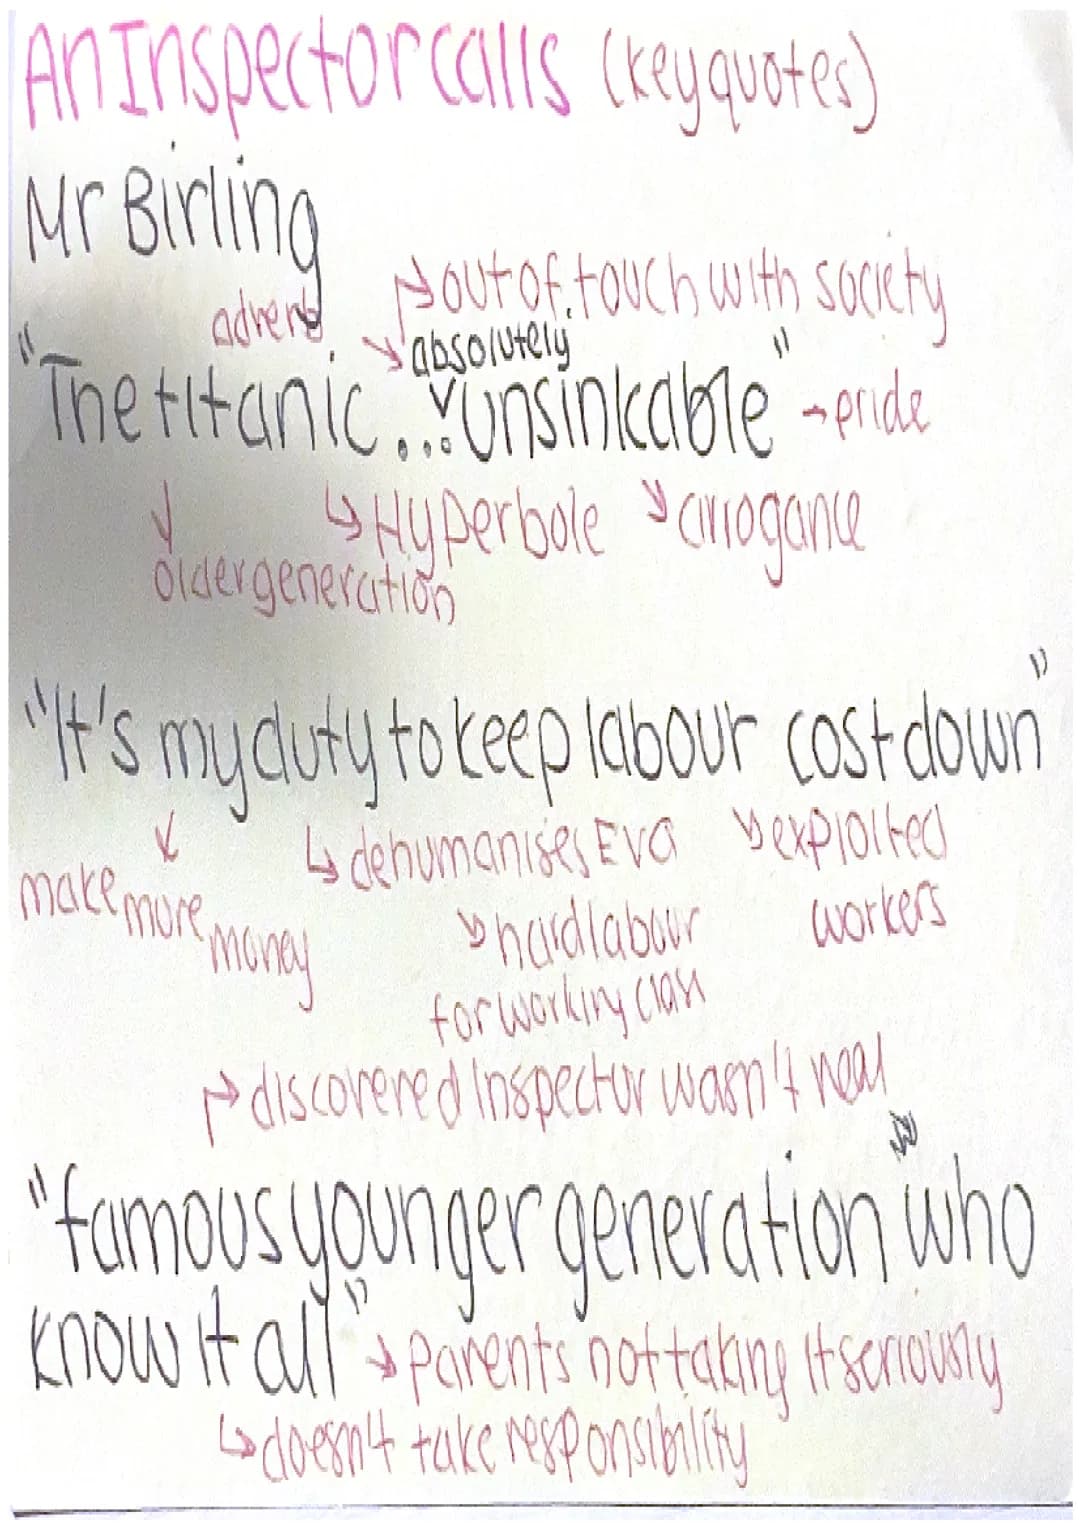 An Inspector calls (key quotes)
Mr Birling
out of touch with society
adverb
absolutely
"The titanic ... unsinkable" → pride
↳ Hyperbole ↘ arrogance
older generation
"It's my duty to keep labour cost down"
↳ dehumanises Eva ↘ exploited
make more money
↘ hard labour workers
for working class
↱ discovered Inspector wasn't real
"famous younger generation who
know it all" → parents not taking it seriously
↳ doesn't take responsibility